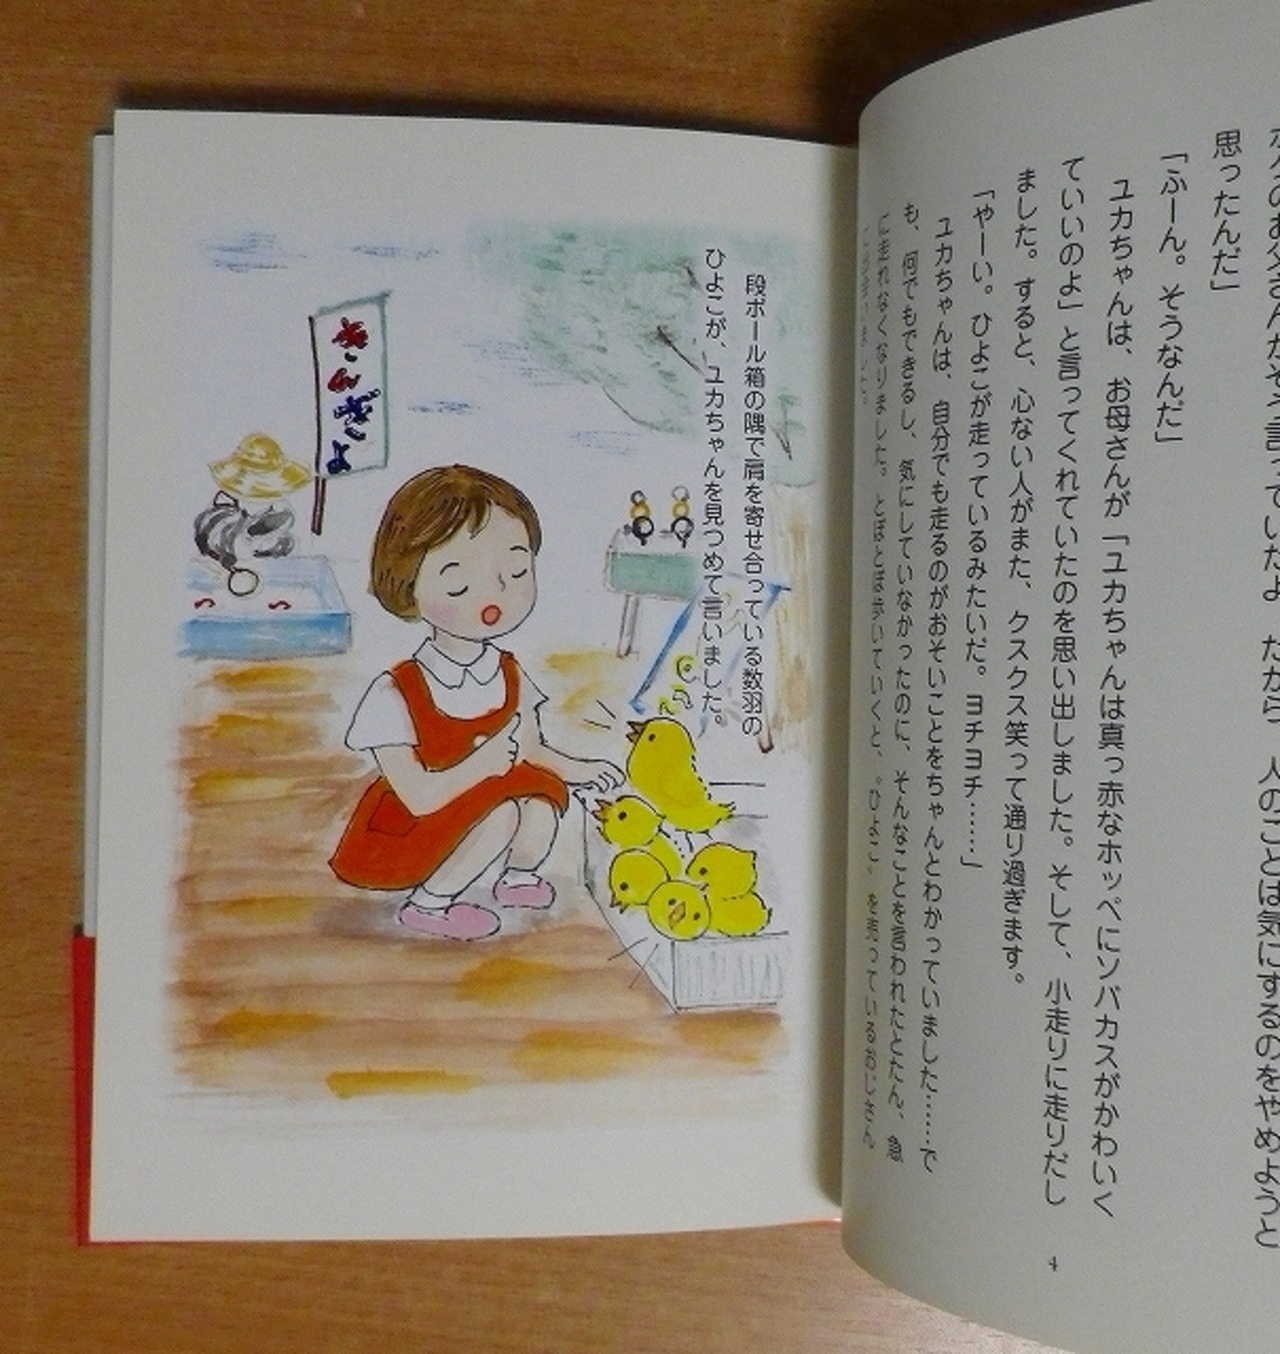 思ったんだ」
「ふーん。そうなんだ」
ユカちゃんは、お母さんが「ユカちゃんは真っ赤なホッペにソバカスがかわいく
ていいのよ」と言ってくれていたのを思い出しました。そして、小走りに走りだし
ました。すると、心ない人がまた、クスクス笑って通り過ぎます。
「やーい。ひよこが走っているみたいだ。ヨチヨチ……」
ユカちゃんは、自分でも走るのがおそいことをちゃんとわかっていました……で
も、何でもできるし、気にしていなかったのに、そんなことを言われたとたん、急
に走れなくなりました。とぼとぼ歩いていくと、“ひよこ”を売っているおじさん
4
段ボール箱の隅で肩を寄せ合っている数羽の
ひよこが、ユカちゃんを見つめて言いました。
きんぎょ